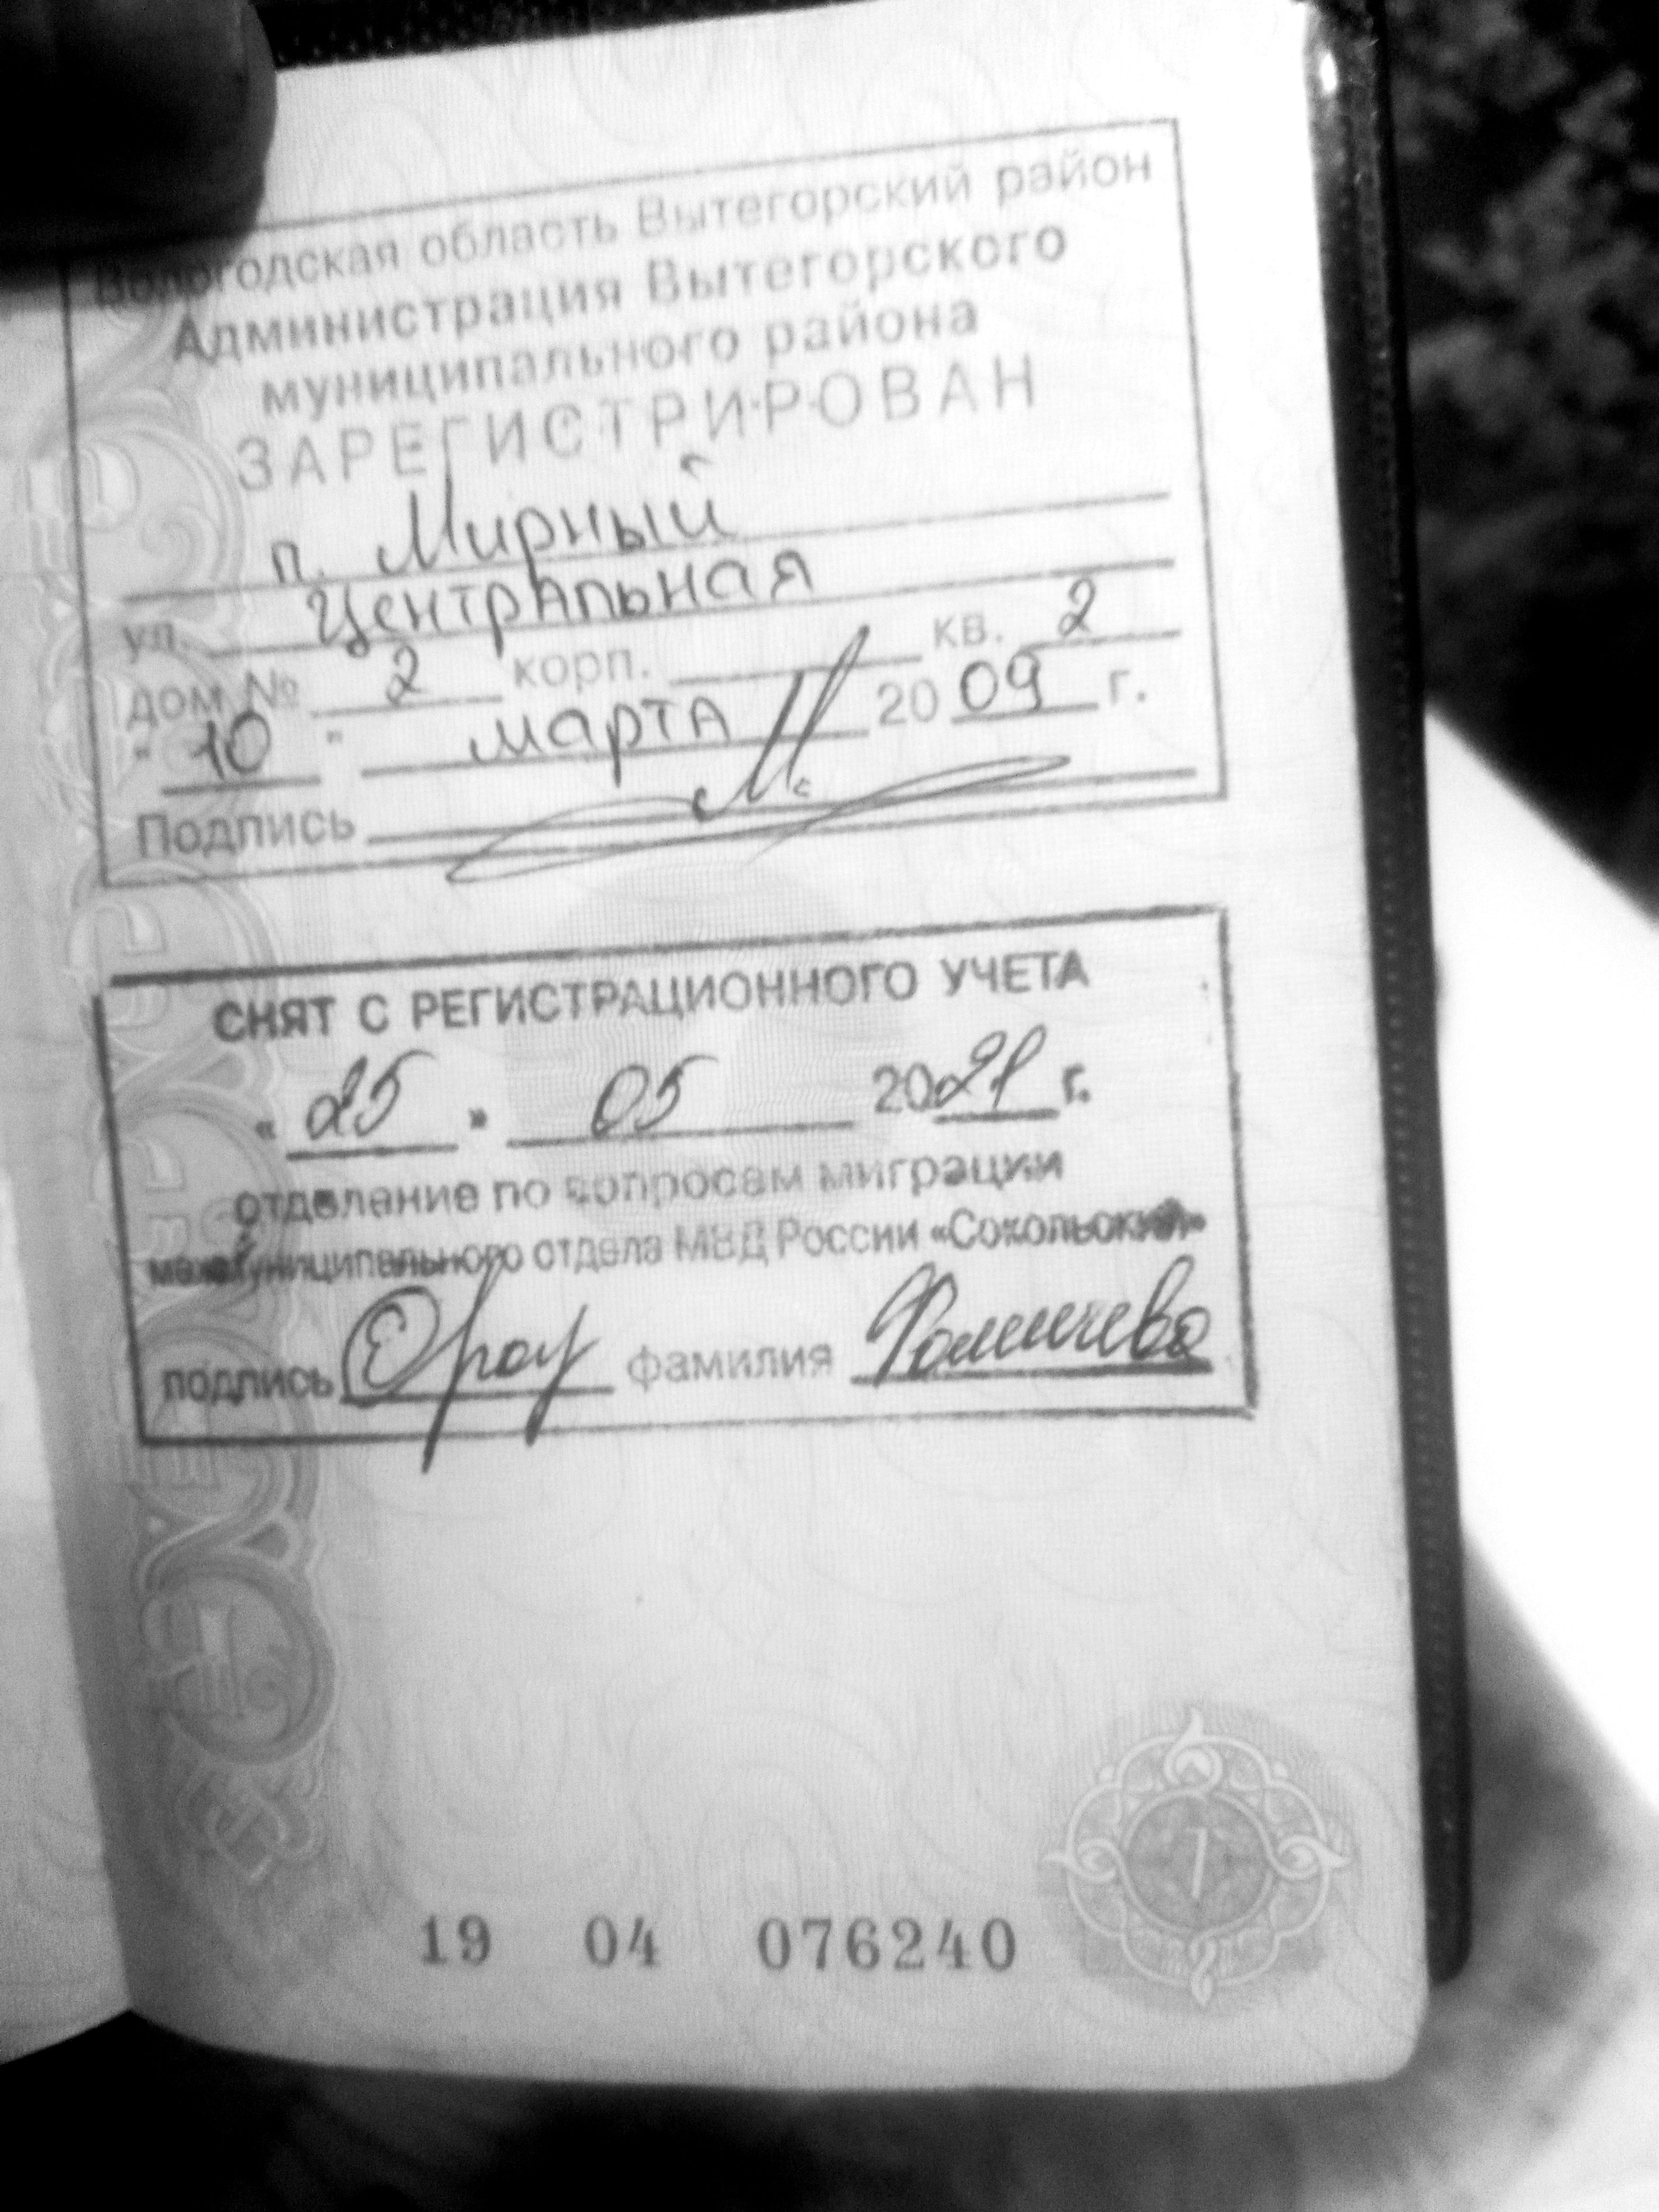 Вологодская область Вытегорский район
Администрация Вытегорского
муниципального района
ЗАРЕГИСТРИРОВАН
п. Мирный
ул. Центральная
дом № 2 корп. кв. 2
" 10 " марта 2009 г.
Подпись
СНЯТ С РЕГИСТРАЦИОННОГО УЧЕТА
« 25 » 05 2021 г.
отделение по вопросам миграции
межмуниципального отдела МВД России «Сокольский»
подпись фамилия Фомичева
7
19 04 076240